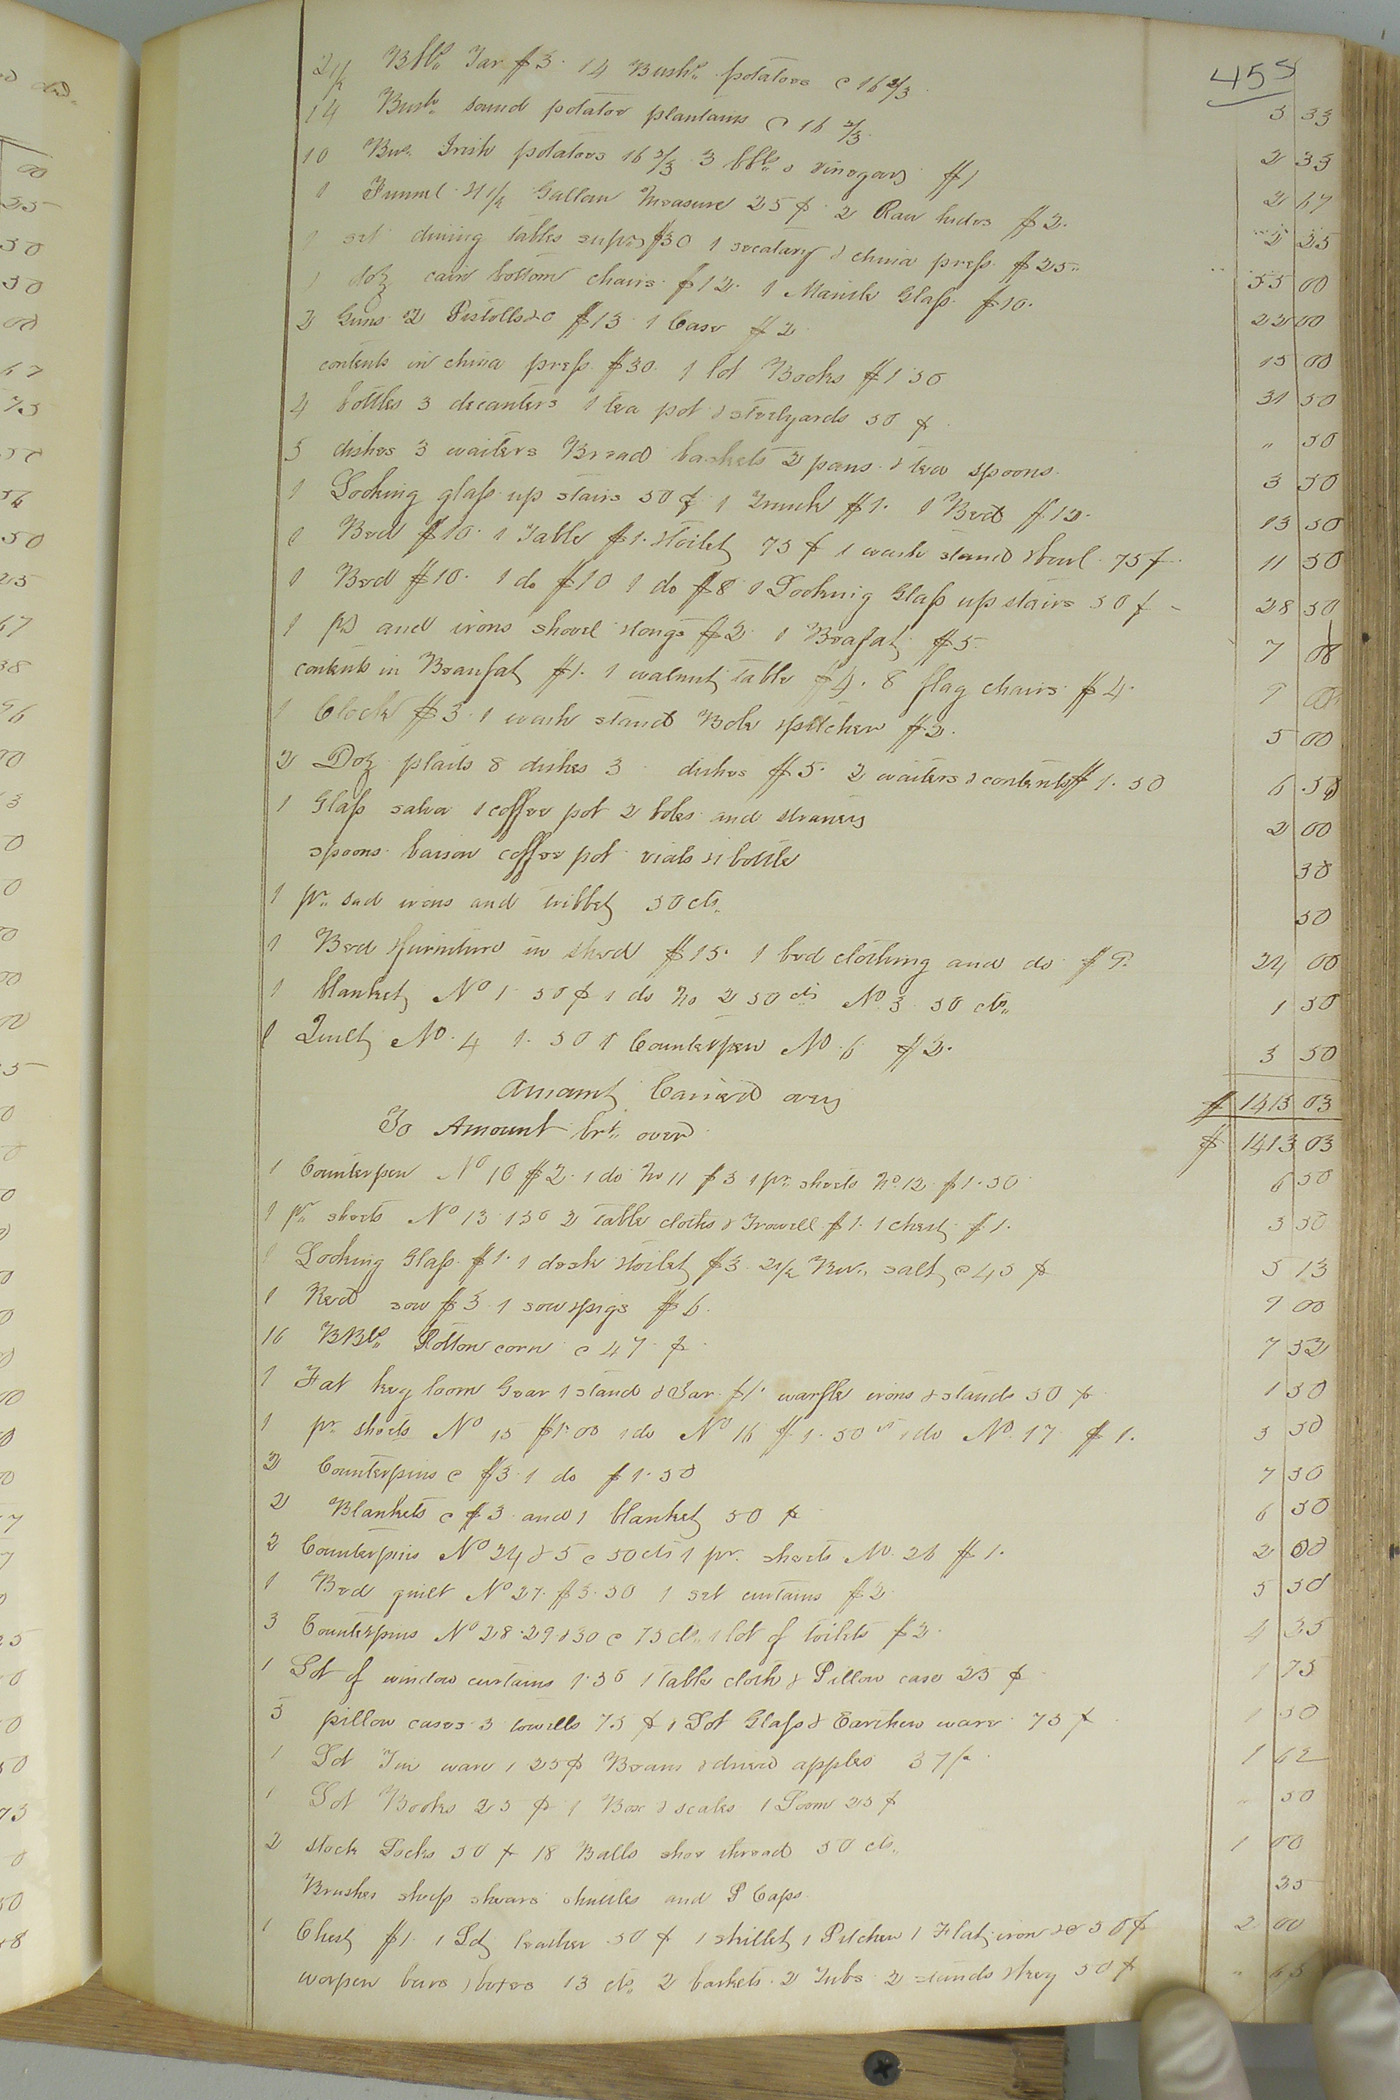 455
2 1/2 Bbls Tar $3. 14 Bushls potatoes @ 16 2/3 5 33
14 Bush sound potatoe plantains @ 16 2/3 2 33
10 Bus Irish potatoes 16 2/3 3 bbls & vinegar $1 2 67
1 Funnel & 1/2 Gallon Measure 25 ¢ 2 Raw hides $2. 2 25
1 set dining tables $30 1 secatary & china press $25 55 00
1 doz cain bottom chairs $12. 1 Mantle Glass $10. 22 00
2 Guns 2 Pistolls &c $13 1 Case $2 15 00
contents in china press $30. 1 lot Books $1 50 31 50
4 bottles 3 decanters 1 tea pot & steelyards 50 ¢ " 50
5 dishes 3 waiters Bread baskets 2 pans & tea spoons 3 50
1 Looking glass up stairs 50 ¢ 1 Trunk $1. 1 Bed $12. 13 50
1 Bed $10. 1 Table $1. & toilet 75 ¢ 1 wash stand & bowl 75 ¢ 11 50
1 Bed $10. 1 do $10 1 do $8 1 Looking Glass up stairs 50 ¢ 28 50
1 pr and irons shovel & tongs $2 1 Beafat $5 7 00
contents in Beaufat $1. 1 walnut table $4. 8 flag chairs $4. 9 00
1 Clock $3. 1 wash stand Bole & pitcher $2. 5 00
2 Doz plaits 8 dishes 3 dishes $5. 2 waiters & contents $1.50 6 50
1 Glass salva 1 coffee pot 2 boles and 2 00
spoons baison coffee pot vials & 1 bottle 30
1 pr sad irons and tribbet 50 cts 50
1 Bed & furniture in shed $15. 1 bed clothing and do $9. 24 00
1 blanket No 1 50 ¢ 1 do No 2 50 cts No 3 50 cts 1 50
1 Quilt No. 4 1.50 1 Counterpen No. 6 $2. 3 50
Amount Carried over $ 1413 03
To Amount brt over $ 1413 03
1 Counterpen No 10 $2. 1 do No 11 $3 1 pr sheets No 12 $1.50 6 50
1 pr sheets No 13 150 2 table cloths & Trowell $1. 1 chest $1. 3 50
1 Looking Glass $1. 1 desk & toilet $3 2 1/2 Bu salt @ 45 ¢ 5 13
1 Red sow $3 1 sow & pigs $6. 9 00
16 BBls Rotton corn @ 47 ¢ 7 52
1 Fat keg loom Gear 1 stand & Jar $1. warfle irons & stands 50 ¢ 1 50
1 pr sheets No 15 $1.00 1 do No 16 $1.50 1 do No. 17 $1. 3 50
2 Counterpins @ $3 1 do $1.50 7 50
2 Blankets @ $3 and 1 blanket 50 ¢ 6 50
2 Counterpins No 24 & 5 @ 50 cts 1 pr sheets No. 26 $1. 2 00
1 Bed quilt No 27. $3.50 1 set curtains $2 5 50
3 Counterpins No 28. 29. & 30 @ 75 cts 1 lot of toilets $2. 4 25
1 Lot of window curtains 1.50 1 table cloth & Pillow case 25 ¢ 1 75
5 pillow cases 3 towells 75 ¢ 1 Lot Glass & Earthen ware 75 ¢ 1 50
1 Lot Tin ware 1 25 ¢ Beans & dried apples 37 1/2 1 62
1 Lot Books 25 ¢ 1 Box & scales 1 Loom 25 ¢ " 50
2 stock Locks 50 ¢ 18 Balls shoe thread 50 cts 1 00
Brushes sheep shears shuttles and P Caps 25
1 Chest $1. 1 Lot leather 50 ¢ 1 skillet 1 Pitcher 1 Flat iron &c 50 ¢ 2 00
bars & boxes 13 cts 2 baskets 2 Tubs 2 stands & keg 50 ¢ " 63